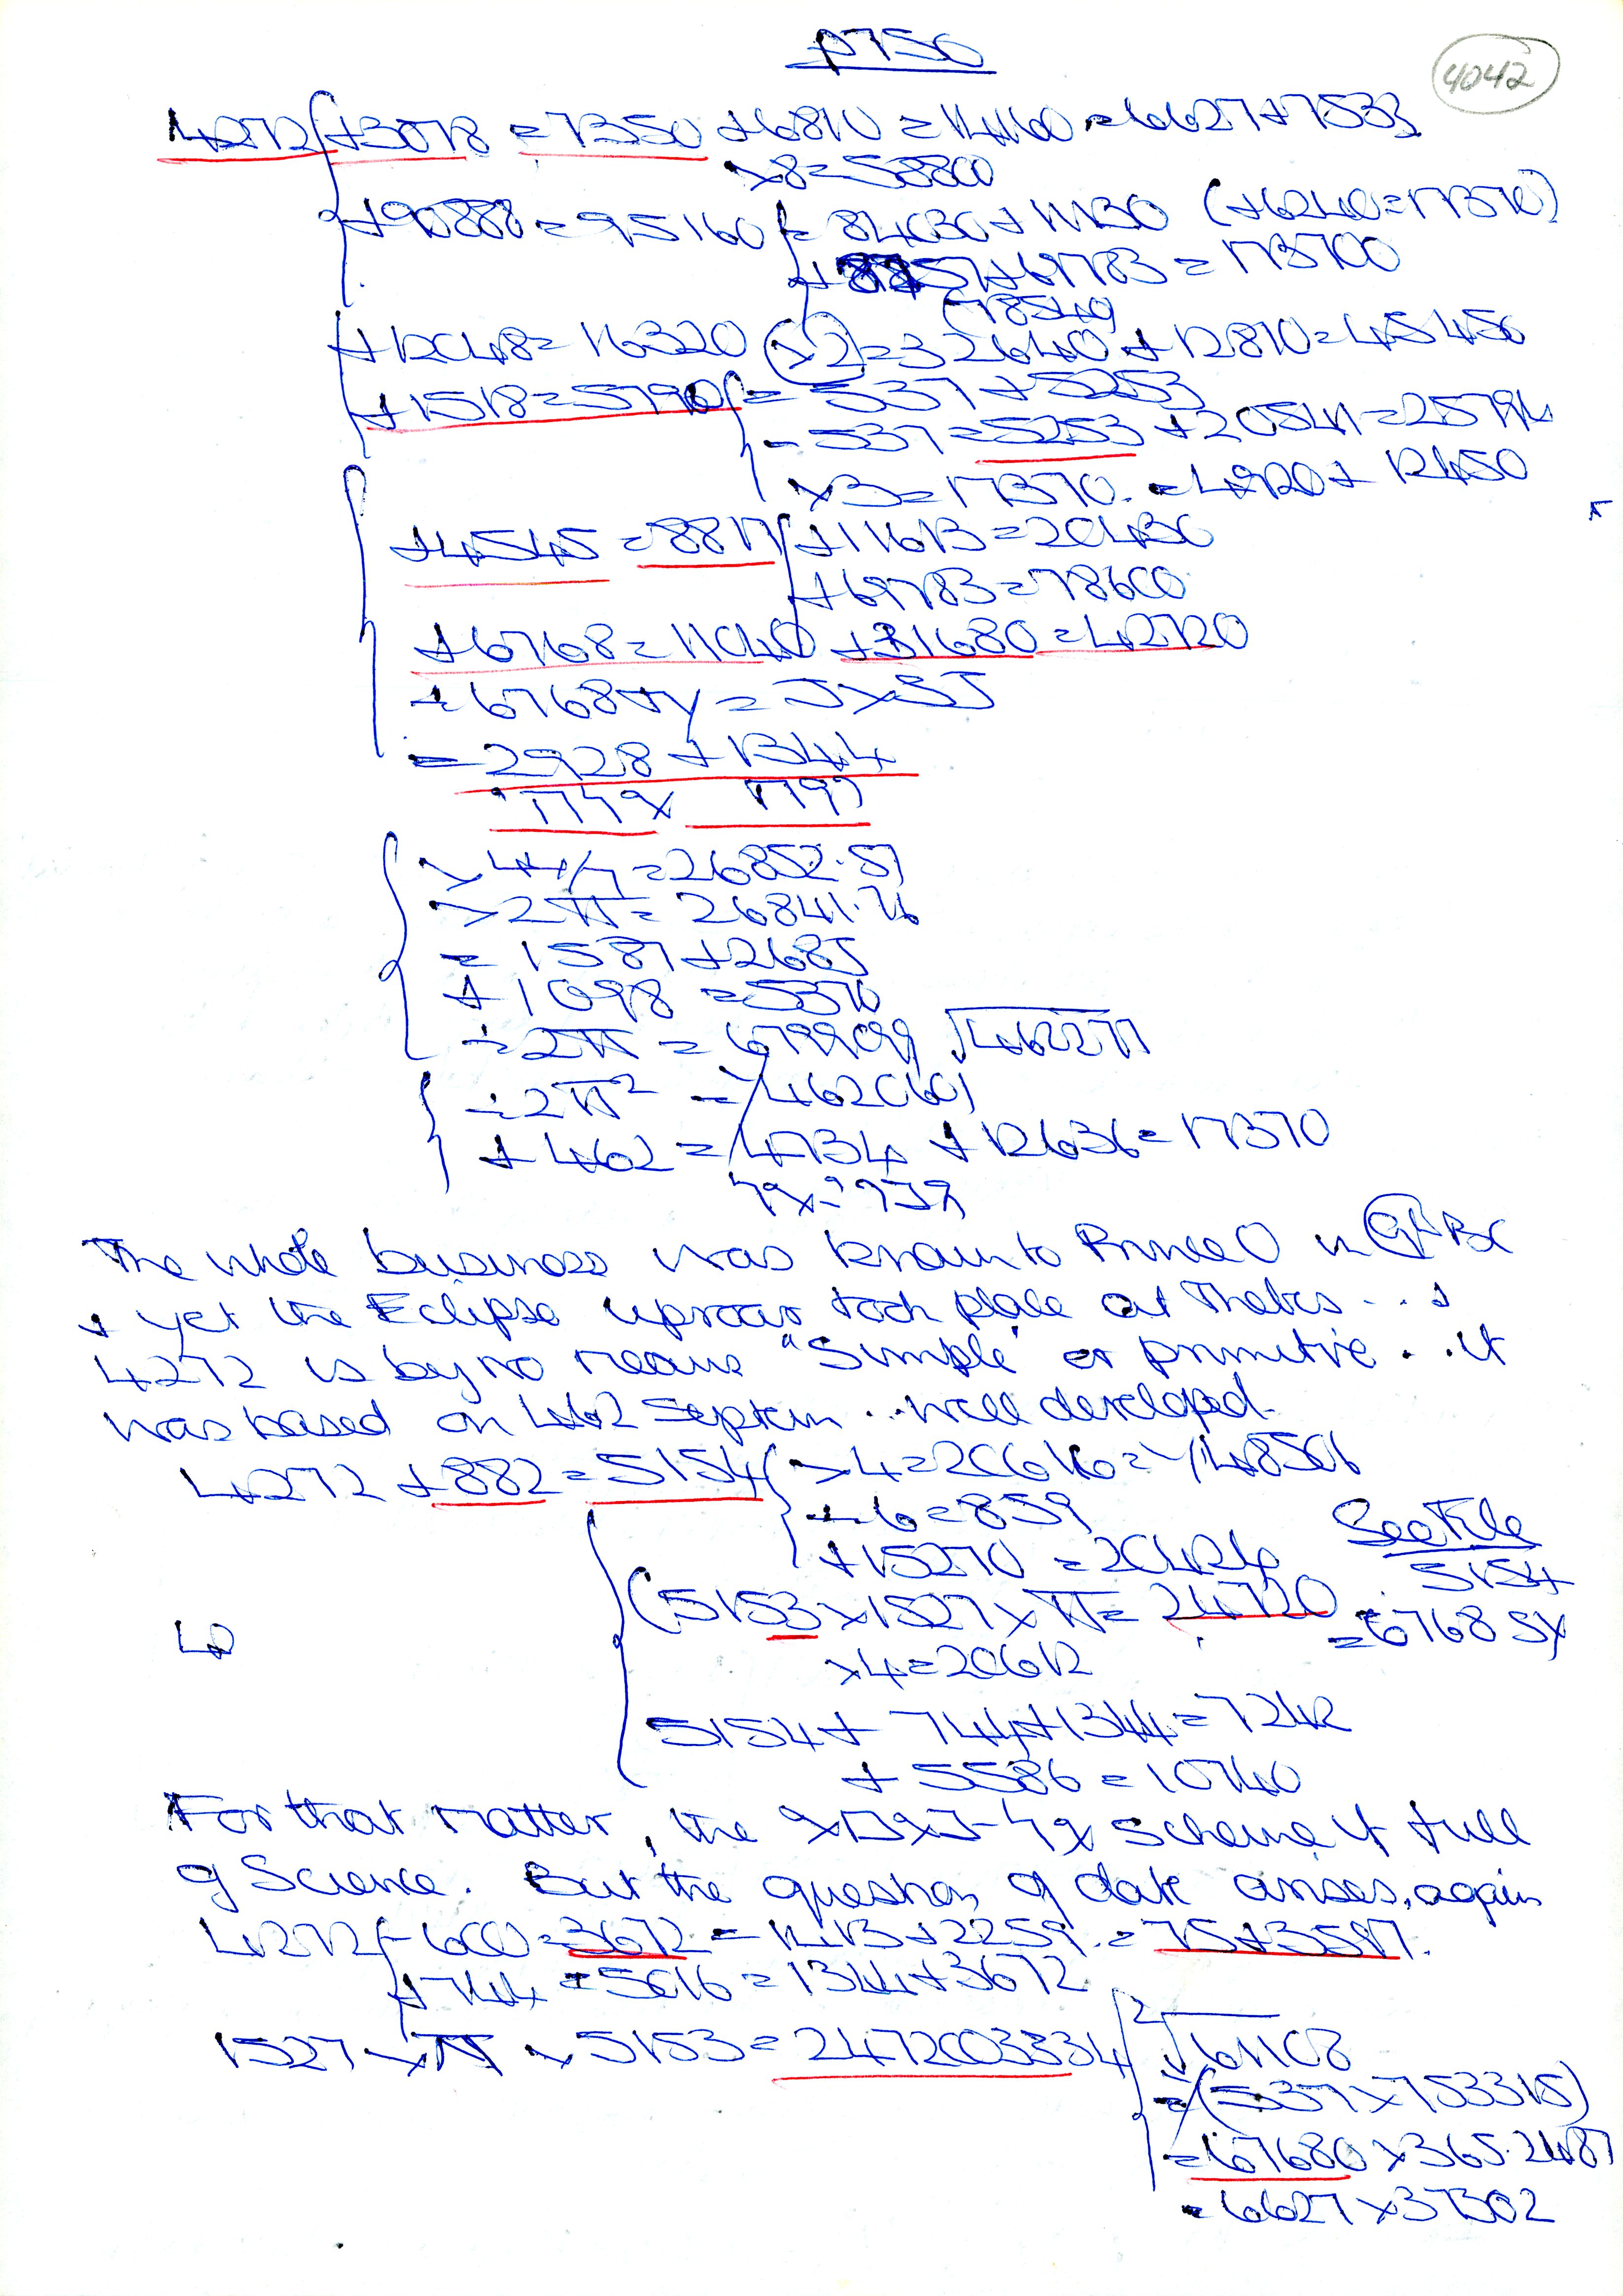 p750
4042
4272 +3078 = 7350 +6810 = 14160 = 6627+7533
×8=58800
+90888 = 95160 = 84030+11130 (+6240=17370)
+69783 = 173700
(78540)
+12048 = 16320 ×2 = 32640 + 12810=45450
+1518=5790 = 537 + 5253
- 537 = 5253 +20541=25794
×3 = 17370 = 4920+ 12450
+4545 = 8817 +11613 = 20430
+69783=78600
+6768 = 11040 +31680 = 42720
= 2928 + 1344
×44/7 = 26852.57
×2π = 26841.76
= 1587+2685
+ 1098 = 5370
÷ 2π = 679909 √462277
÷ 2π² =
+ 462 = 4734 + 12636 = 17370
The whole business was known to Prince O in 9th BC
+ yet the Eclipse uproar took place at Thebes ... +
4272 is by no means "Simple" or primitive . . it
was based on 462 Septem ... well developed.
4272 + 882 = 5154 ×4=20616 =
÷ 6 = 859
+15270 = 20424
See File
5154
(5153 ×1527 × π = 24720 = 6768 SY
×4=20612
5154 + 744+1344 = 7242
+ 5586 = 10740
For that matter, the scheme is full
of Science. But the question of date arises, again
4272 - 600 = 3672 = 1413+2259 = 75+3597.
+744 = 5016 = 1344+3672
1527 × π × 5153 = 2472003334 √61108
= (537 × 153315)
= 67680 × 365.2487
= 6627 × 37302